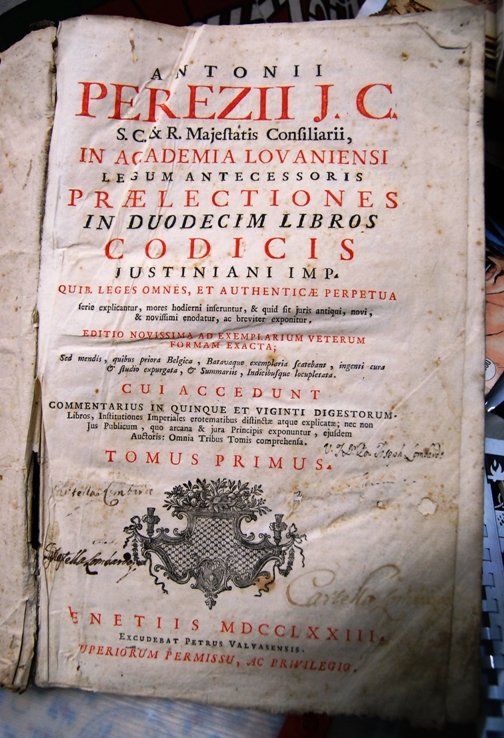 ANTONII
PEREZII J. C.
S. C. & R. Majestatis Consiliarii,
IN ACADEMIA LOVANIENSI
LEGUM ANTECESSORIS
PRÆLECTIONES
IN DUODECIM LIBROS
CODICIS
JUSTINIANI IMP.
QUIB. LEGES OMNES, ET AUTHENTICÆ PERPETUA
serie explicantur, mores hodierni inseruntur, & quid sit juris antiqui, novi,
& novissimi enodatur, ac breviter exponitur.
EDITIO NOVISSIMA AD EXEMPLARIUM VETERUM
FORMAM EXACTA;
Sed mendis, quibus priora Belgica, Batavaque exemplaria scatebant, ingenti cura
& studio expurgata, & Summariis, Indicibusque locupletata.
CUI ACCEDUNT
COMMENTARIUS IN QUINQUE ET VIGINTI DIGESTORUM
Libros, Institutiones Imperiales erotematibus distinctæ atque explicatæ; nec non
Jus Publicum, quo arcana & jura Principis exponuntur, ejusdem
Auctoris: Omnia Tribus Tomis comprehensa.
TOMUS PRIMUS.
ENETIIS MDCCLXXIII.
EXCUDEBAT PETRUS VALVASENSIS.
UPERIORUM PERMISSU, AC PRIVILEGIO.